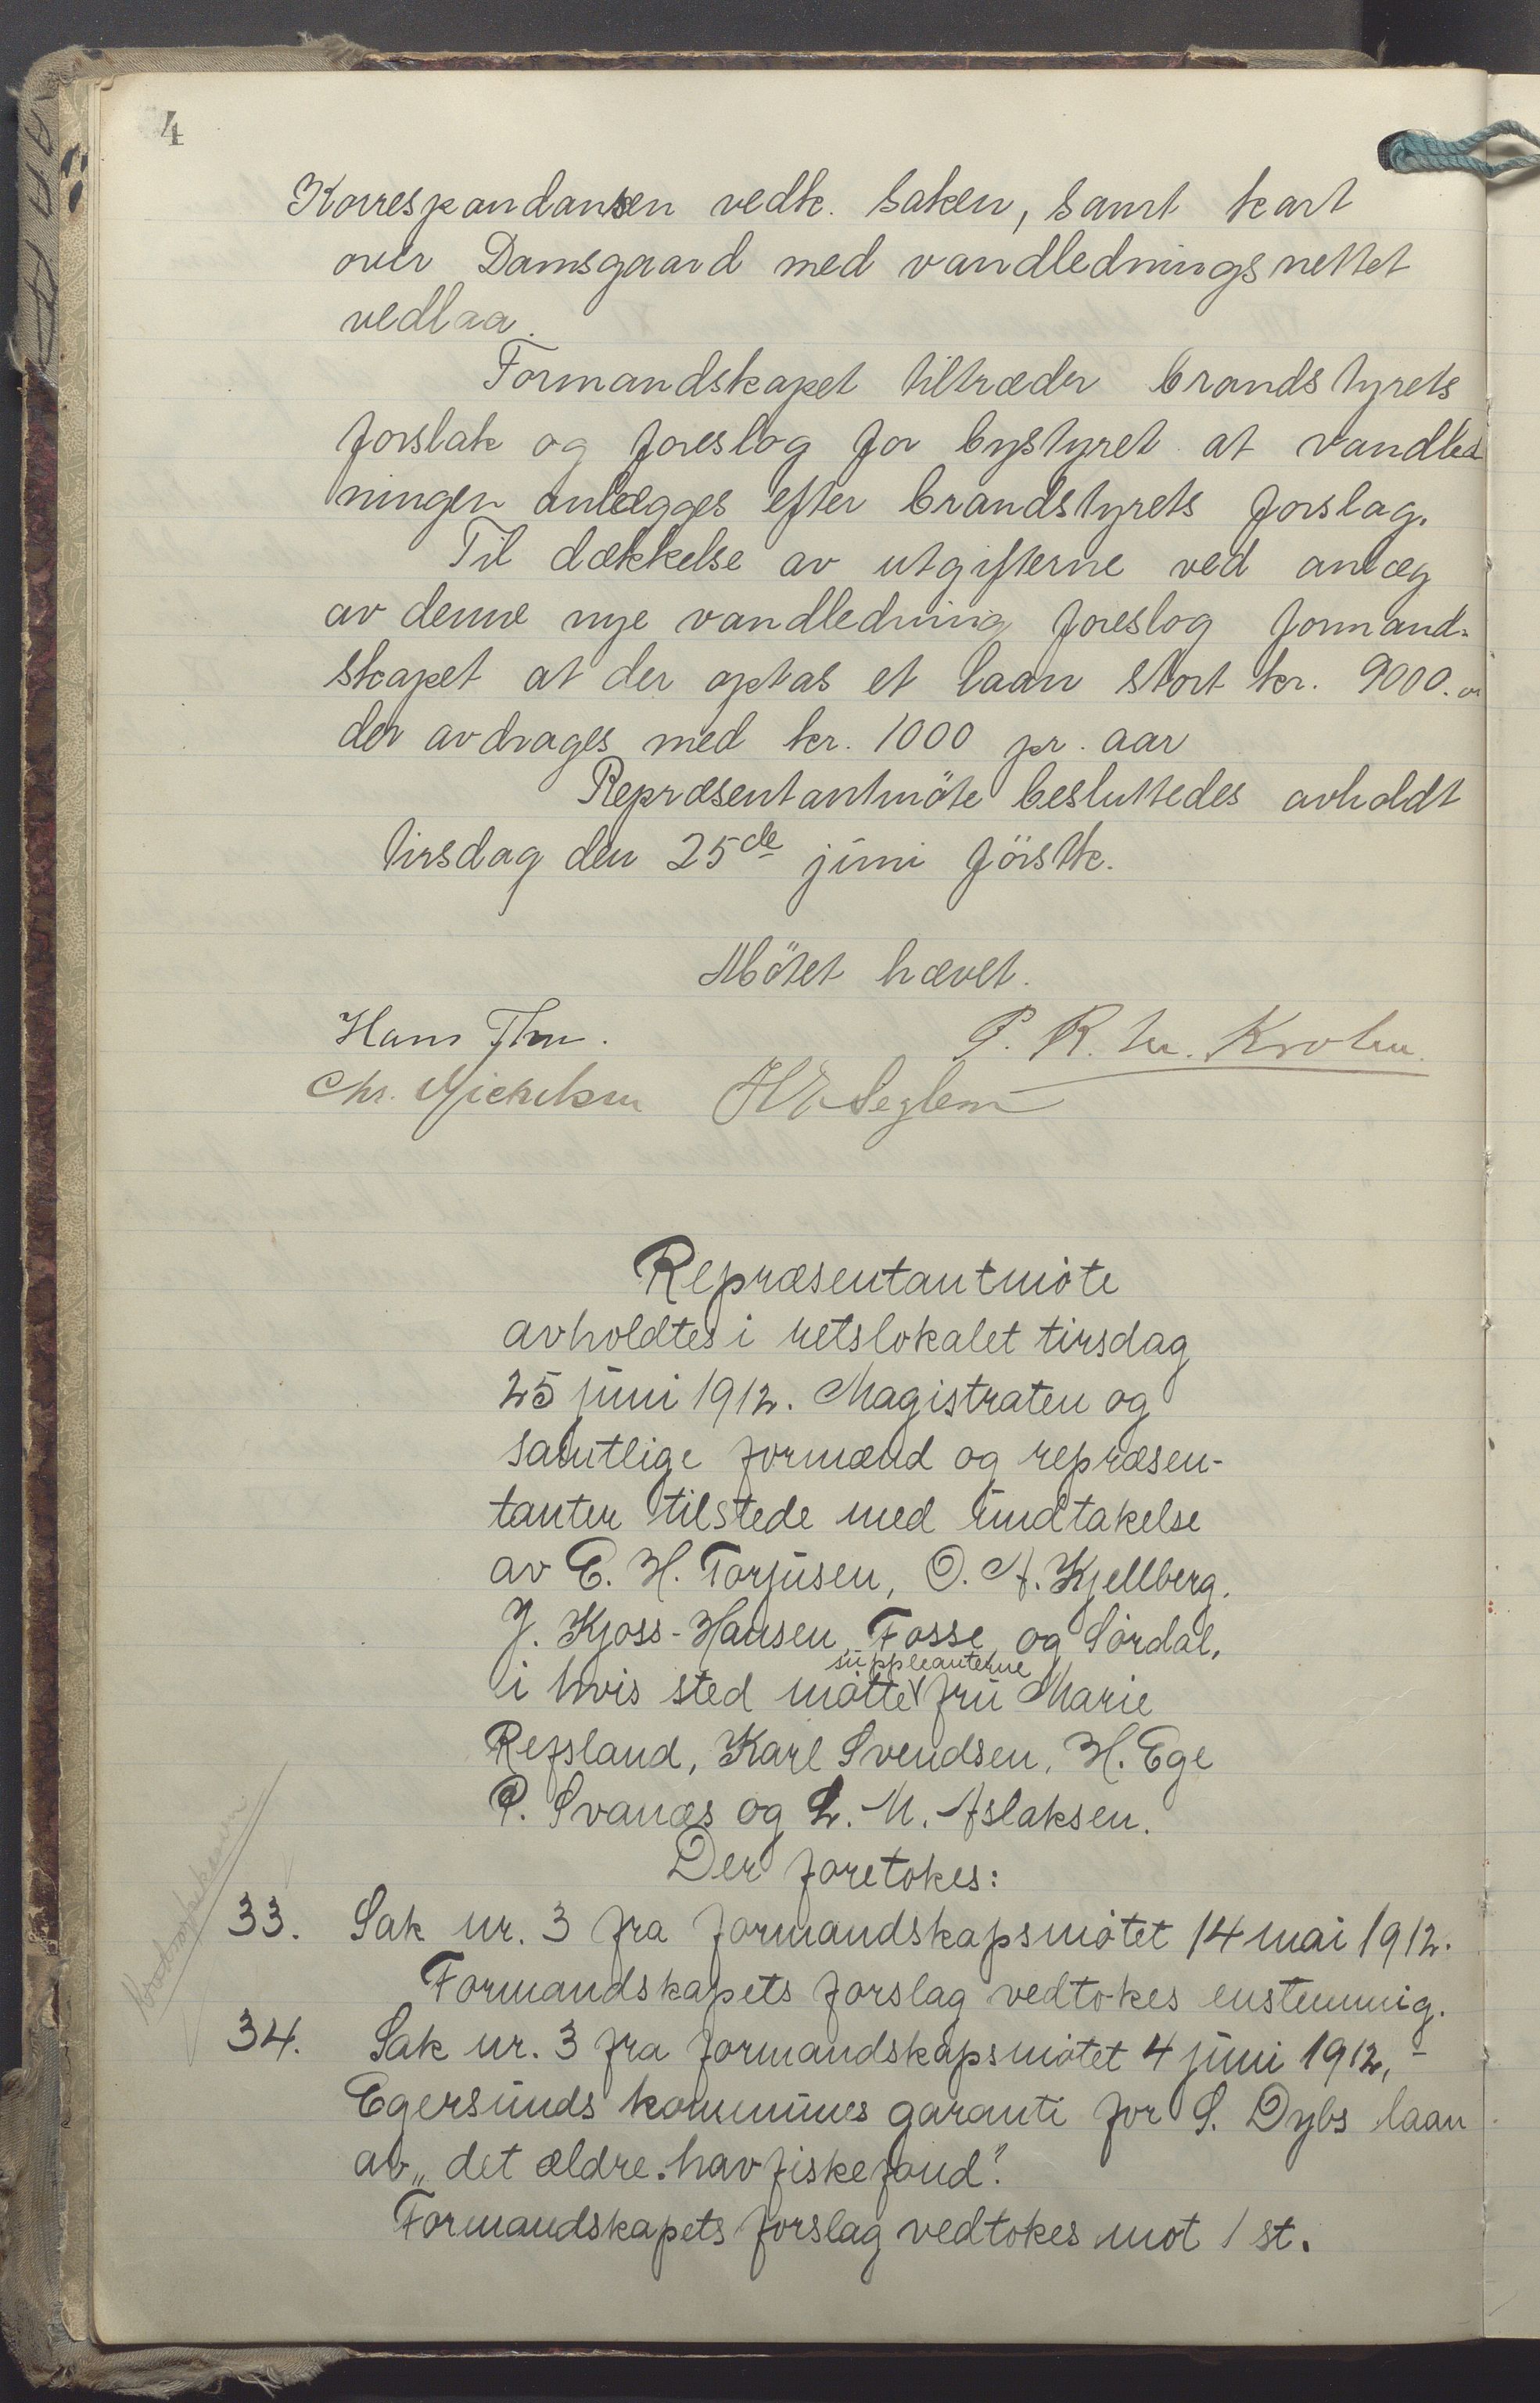 4
Korrespondansen vedk. saken, samt kart
over Damsgaard med vandledningsnettet
vedlaa.
Formandskapet tiltræder brandstyrets
forslak og foreslog for bystyret at vandled
ningen anlægges efter brandstyrets forslag.
Til dækkelse av utgifterne ved anlæg
av denne nye vandledning foreslog formand-
skapet at der optas et laan stort kr. 9000.
der avdrages med kr. 1000 pr. aar
Repræsentantmöte besluttedes avholdt
tirsdag den 25de juni förstk.
Mötet hævet.
Hans P. R. Krohn.
Chr. Michelsen Seglem
Repræsentantmöte
avholdtes i retslokalet tirsdag
25 juni 1912. Magistraten og
samtlige formænd og repræsen-
tanter tilstede med undtakelse
av E. H. Torjusen, O. A. Kjellberg,
J. Kjoss-Hansen, Fosse og Sördal,
suppleanterne
i hvis sted mötte fru Marie
Refsland, Karl Svendsen, H. Ege
P. Svanæs og L. M. Aslaksen.
Der foretokes:
33. Sak nr. 3 fra formandskapsmötet 14 mai 1912.
Formandskapets forslag vedtokes enstemmig.
34. Sak nr. 3 fra formandskapsmötet 4 juni 1912, -
Egersunds kommunes garanti for S. Dybs laan
av „det ældre havfiskefond".
Formandskapets forslag vedtokes mot 1 st.